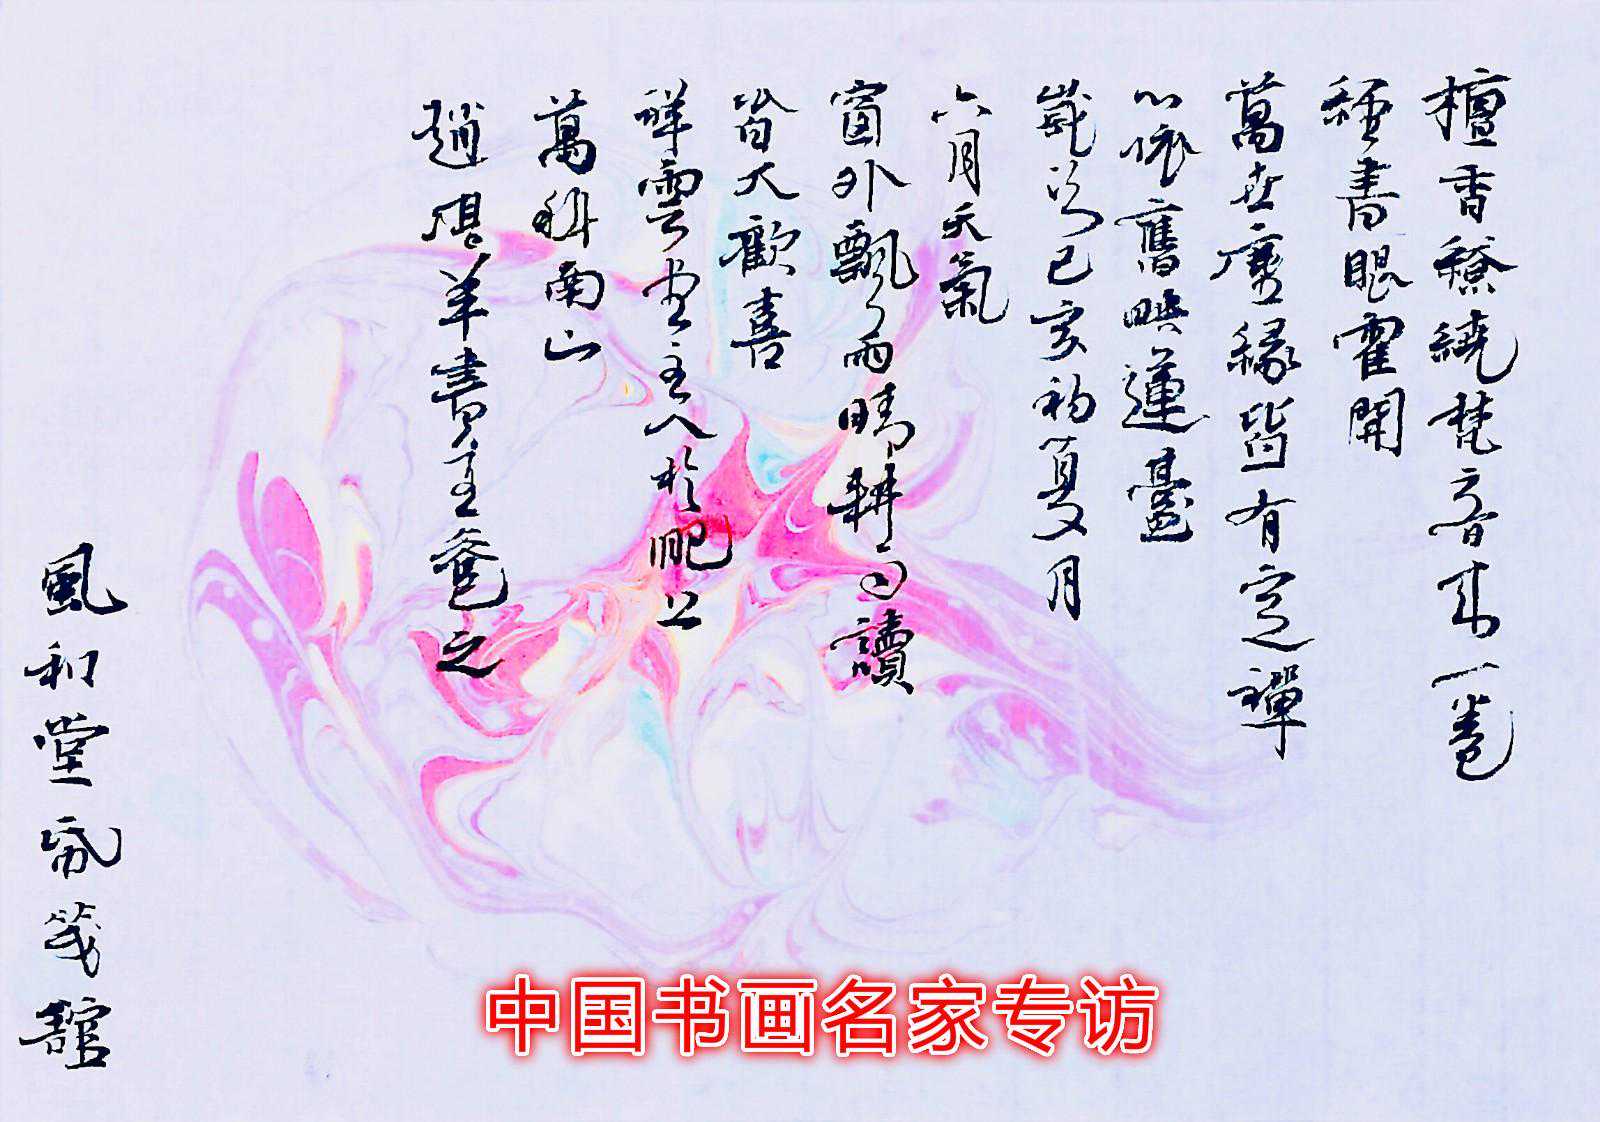 檀香繚繞梵音來一卷
種書眼霍開
萬世塵緣皆有定禪
心依舊映蓮臺
歲次己亥初夏月
六月天氣
窗外飄々雨晴耕雨讀
皆大歡喜
祥雲堂主人於肥上
萬科南山
趙羊書主
風和堂帋箋館
中国书画名家专访